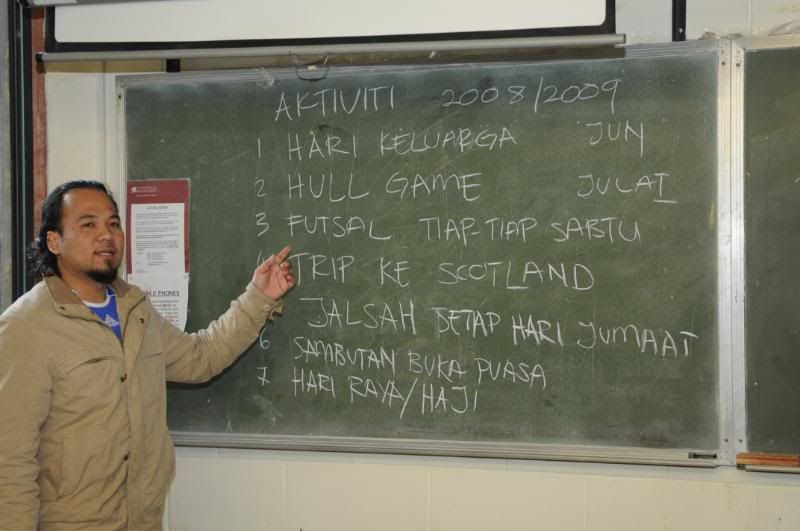 AKTIVITI 2008/2009
1 HARI KELUARGA JUN
2 HULL GAME JULAI
3 FUTSAL TIAP-TIAP SABTU
4 TRIP KE SCOTLAND
JALSAH SETAP HARI JUMAAT
6 SAMBUTAN BUKA PUASA
7 HARI RAYA/HAJI
PHONES